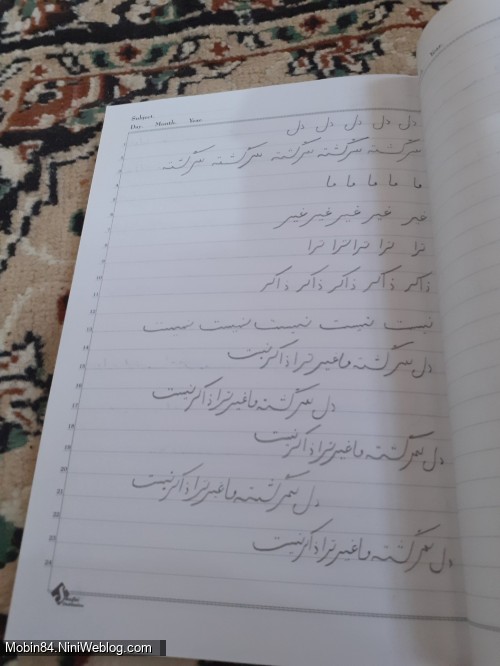 Subject
Day. Month. Year.
دل دل دل دل دل
سرگشته سرگشته سرگشته سرگشته سرگشته
ما ما ما ما ما
غیر غیر غیر غیر غیر
ترا ترا ترا ترا ترا
ذاکر ذاکر ذاکر ذاکر ذاکر
نیست نیست نیست نیست نیست
دل سرگشته ما غیر ترا ذاکر نیست
دل سرگشته ما غیر ترا ذاکر نیست
دل سرگشته ما غیر ترا ذاکر نیست
دل سرگشته ما غیر ترا ذاکر نیست
دل سرگشته ما غیر ترا ذاکر نیست
Mobin84.NiniWeblog.com